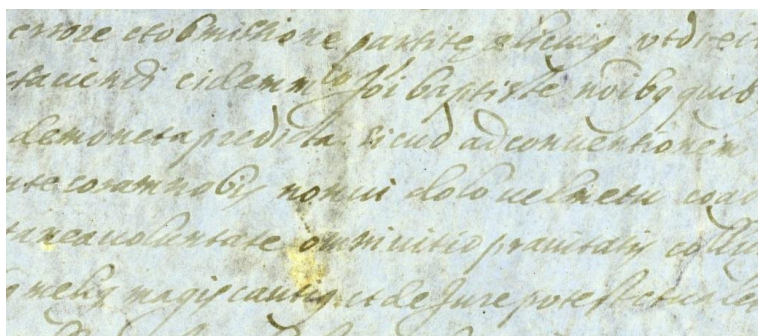 errore et obmissione partite alicuiq vt dr ei
et faciendi eidem mco Joi baptiste noibq quib
de moneta predicta sicud ad conventionem
nte coram nobis non vi dolo vel metu coac
tanea voluntate omni vitio pravitatis
melius magis cautiq et de Jure potest et valet